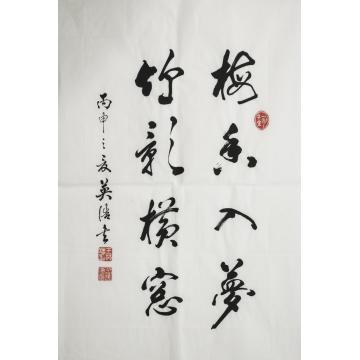 梅香入夢
竹影横窓
丙申之夏英浩書